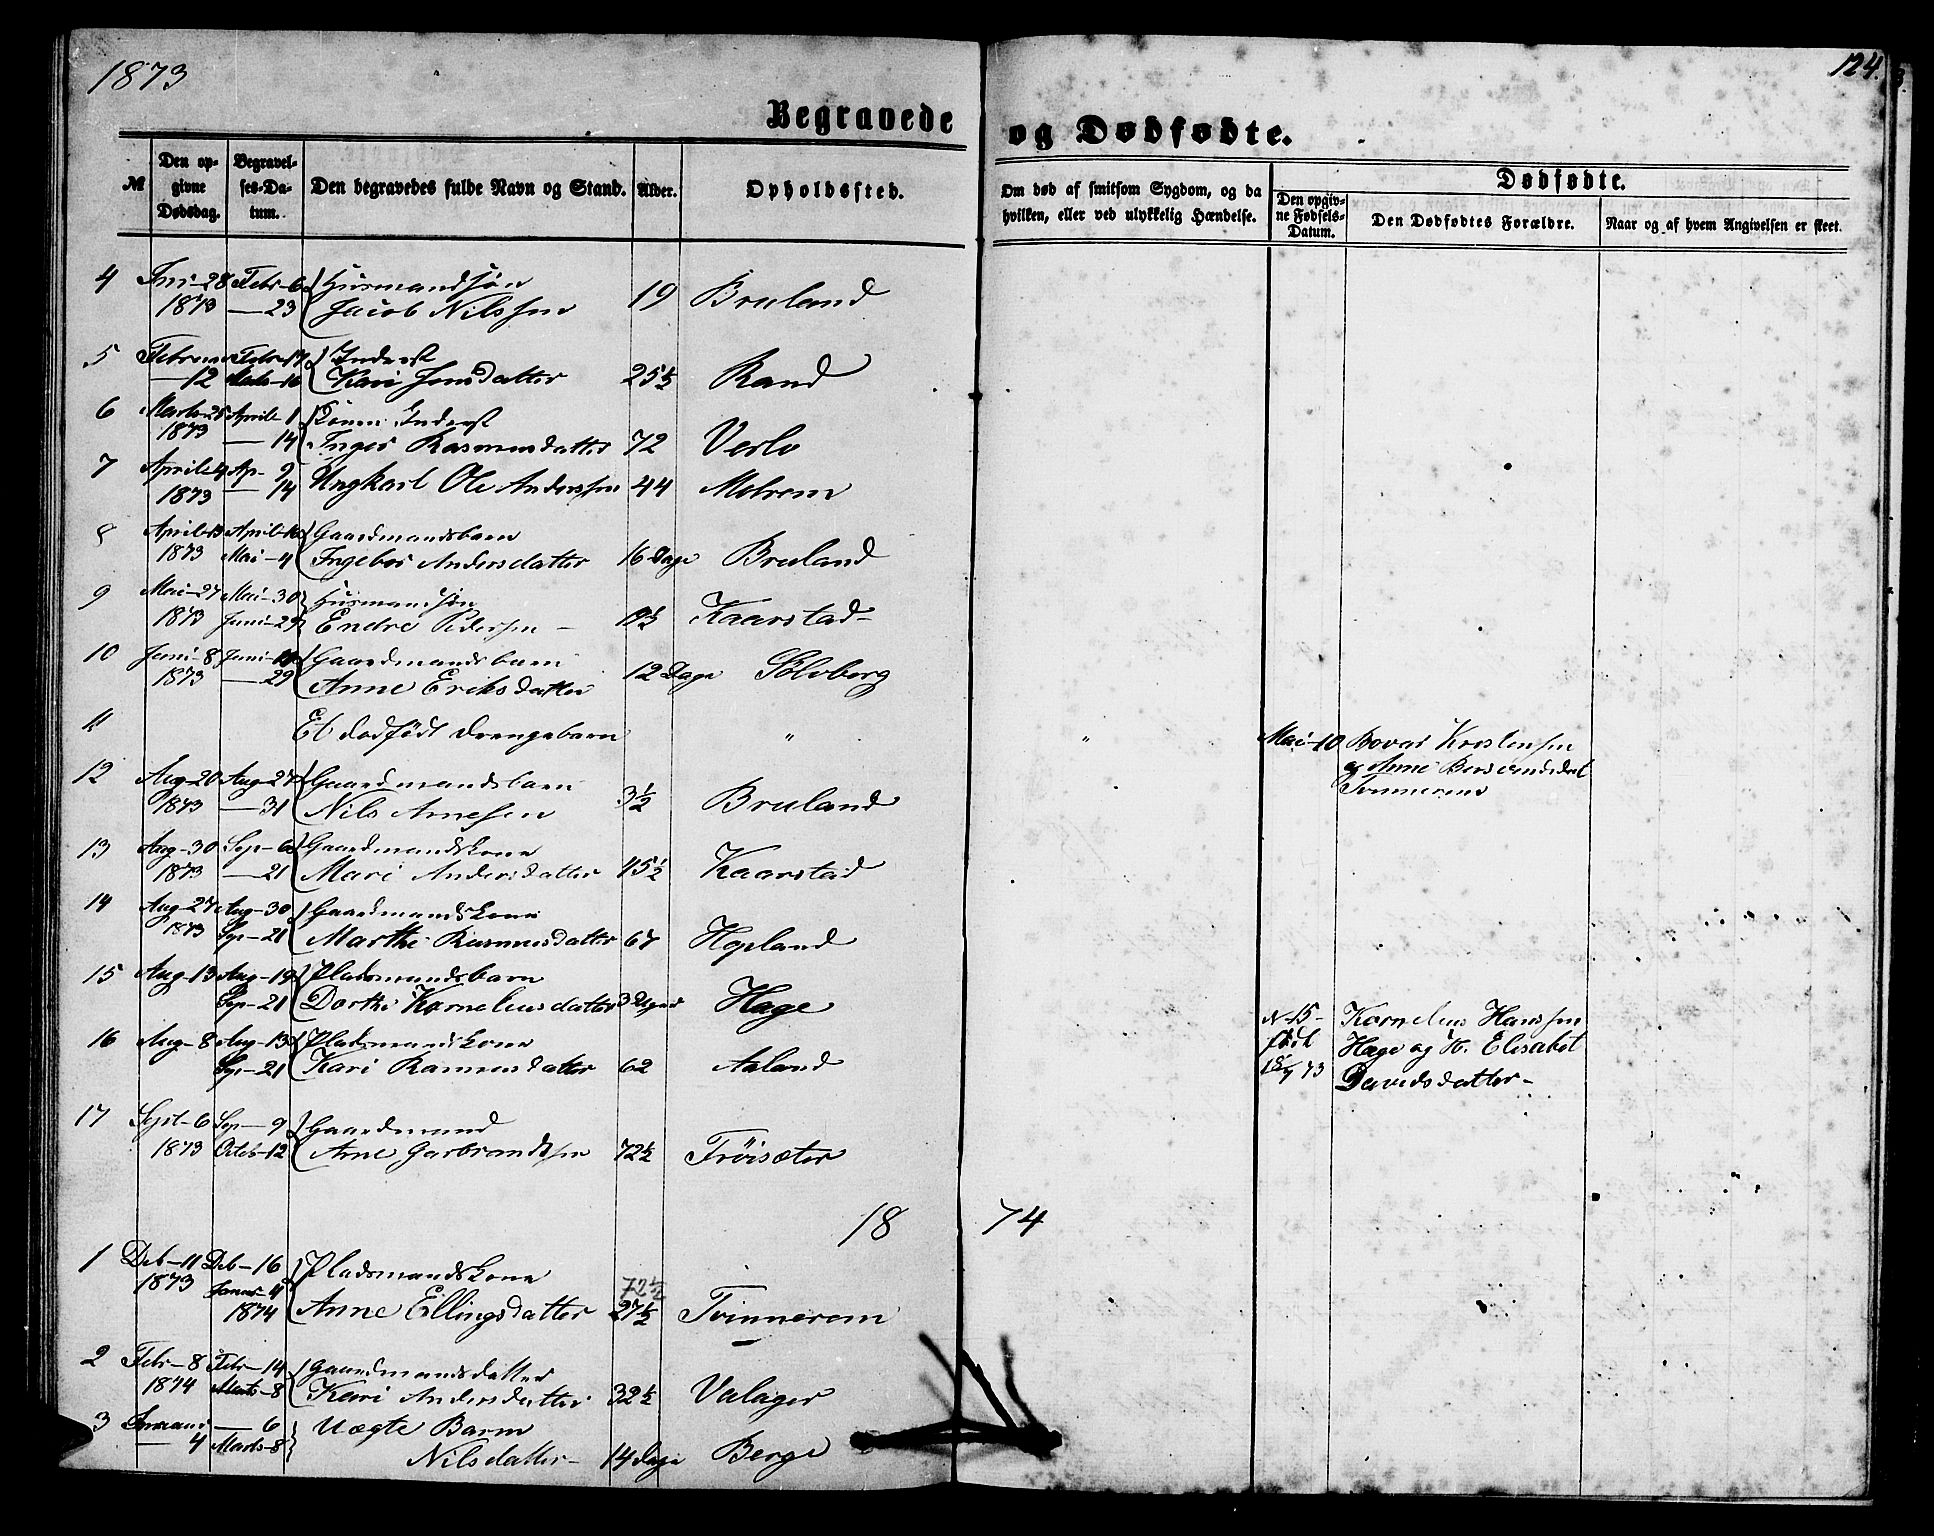 1873
124.
Begravede og Dødfødte.
№
Den opgivne Dødsdag.
Begravelses-Datum.
Den begravedes fulde Navn og Stand.
Alder.
Opholdssted.
Om død af smitsom Sygdom, og da hvilken, eller ved ulykkelig Hændelse.
Dødfødte.
Den opgivne Fødsels-Datum.
Den Dødfødtes Forældre.
Naar og af hvem Angivelsen er skeet.
4 28 Febr-6 Husmandssøn
1873 — 23 Jacob Nilssen 19 Bruland
5 Febr-17 Inderst
— 12 Marts-16 Kari Jonsdatter 25½ Rand
6 Marts-25 Aprile 1 Inderst
1873 — 14 Inger Rasmusdatter 72 Verlo
7 Aprile 4 Ap- 9 Ungkarl Ole Anderssen 44 Molrem
1873 — 14
8 April-13 April-16 Gaardmandsbarn
1873 Mai-4 Ingebor Andersdatter 16 Dage Bruland
9 Mai-27 Mai-30 Husmandssøn
1873 Juni-29 Endre Pedersen — Kaarstad-
10 Juni-8 Juni- Gaardmandsbarn
1873 — 29 Anne Eriksdatter 12 Dage Solvberg
11 Et dødfødt Drengebarn " " Mai-10 Bovar Korstensen
og Anne
Tvinnerem
12 Aug-20 Aug-27 Gaardmandsbarn
1873 — 31 Nils Arnesen 3½ Bruland
13 Aug-30 Sep-6 Gaardmandskone
1873 — 21 Mari Andersdatter 45½ Kaarstad
14 Aug-27 Aug-30 Gaardmandskone
1873 Sep-21 Marthe Rasmusdatter 67 Hopland
15 Aug-13 Aug-19 Pladsmandsbarn
Sep-21 Dorthe Korneliusdatter 3 Uger Hage
N-15- Kornelius Hanssen
født Hage og H. Elisabet
73 Davidsdatter-
16 Aug-8 Aug-13 Pladsmandskone
Sep-21 Kari Rasmusdatter 62 Aaland
17 Sept-6 Sep-9 Gaardmand
1873 Octob-12 Arne Garbrandssen 72½ Trøisæter
1874
1 Deb-11 Deb-16 Pladsmandskone
1873 Janur-4 72½
1874 Anne Ellingsdatter 27½ Tvinnerem
2 Febr-8 Febr-14 Gaardmandsdatter
1874 Marts-8 Kari Andersdatter 32½ Valager
3 — 6 Uægte Barn
— 4 Marts-8 Nilsdatter- 14 Dage Berge